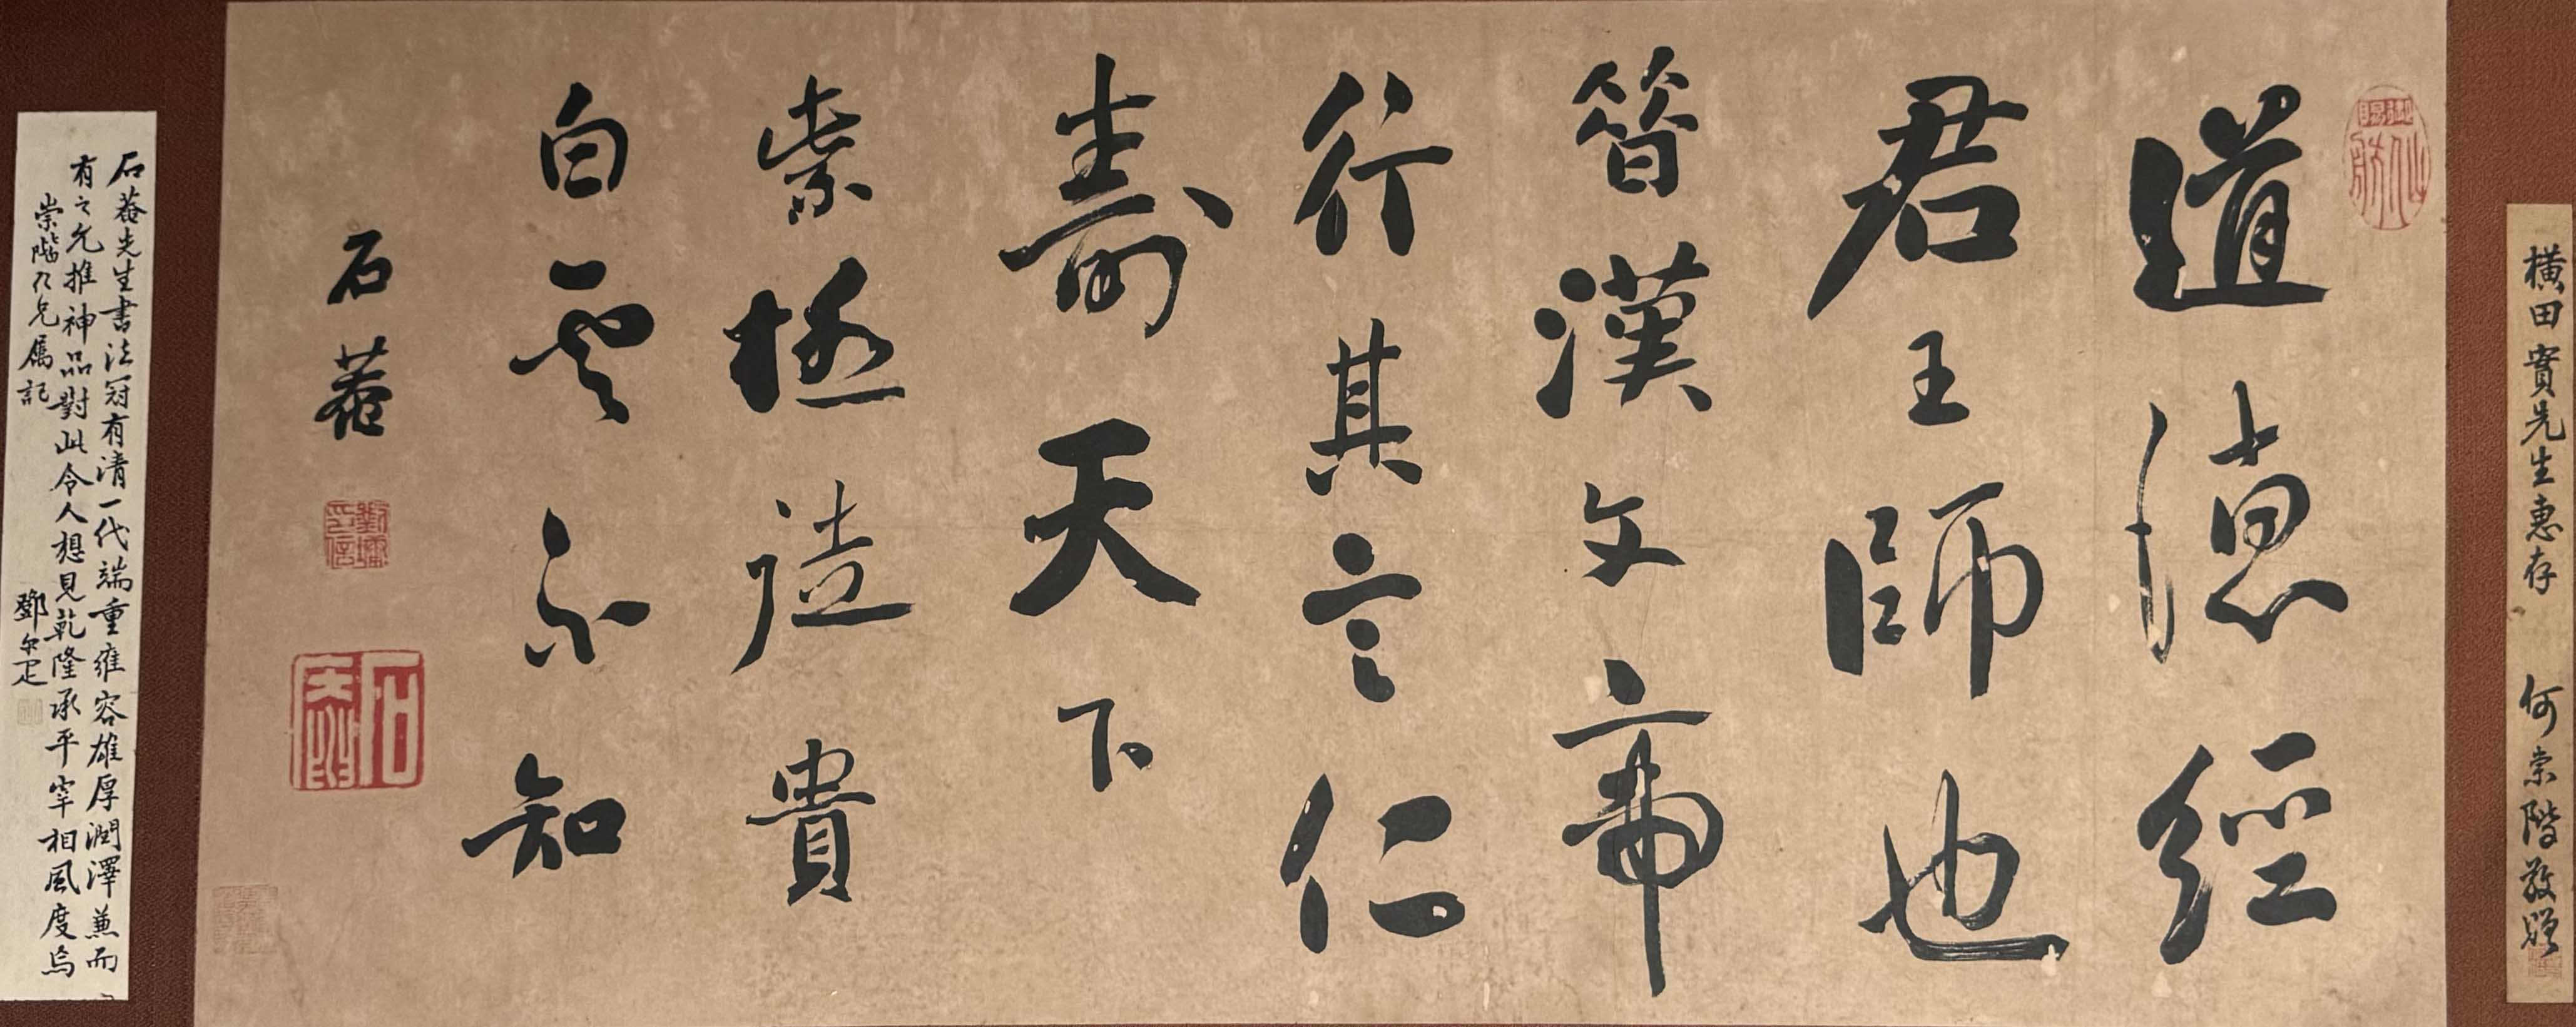 橫田實先生惠存　何崇階敬贈
御賜仙舫
道德經
君王師也
昔漢文帝
行其言仁
壽天下
紫極詰貴
白雲不知
石菴
劉墉印信
石菴
石菴先生書法冠有清一代端重雍容雄厚潤澤兼而
有之允推神品對此令人想見乾隆承平宰相風度焉
崇階仁兄屬記
鄧尔疋